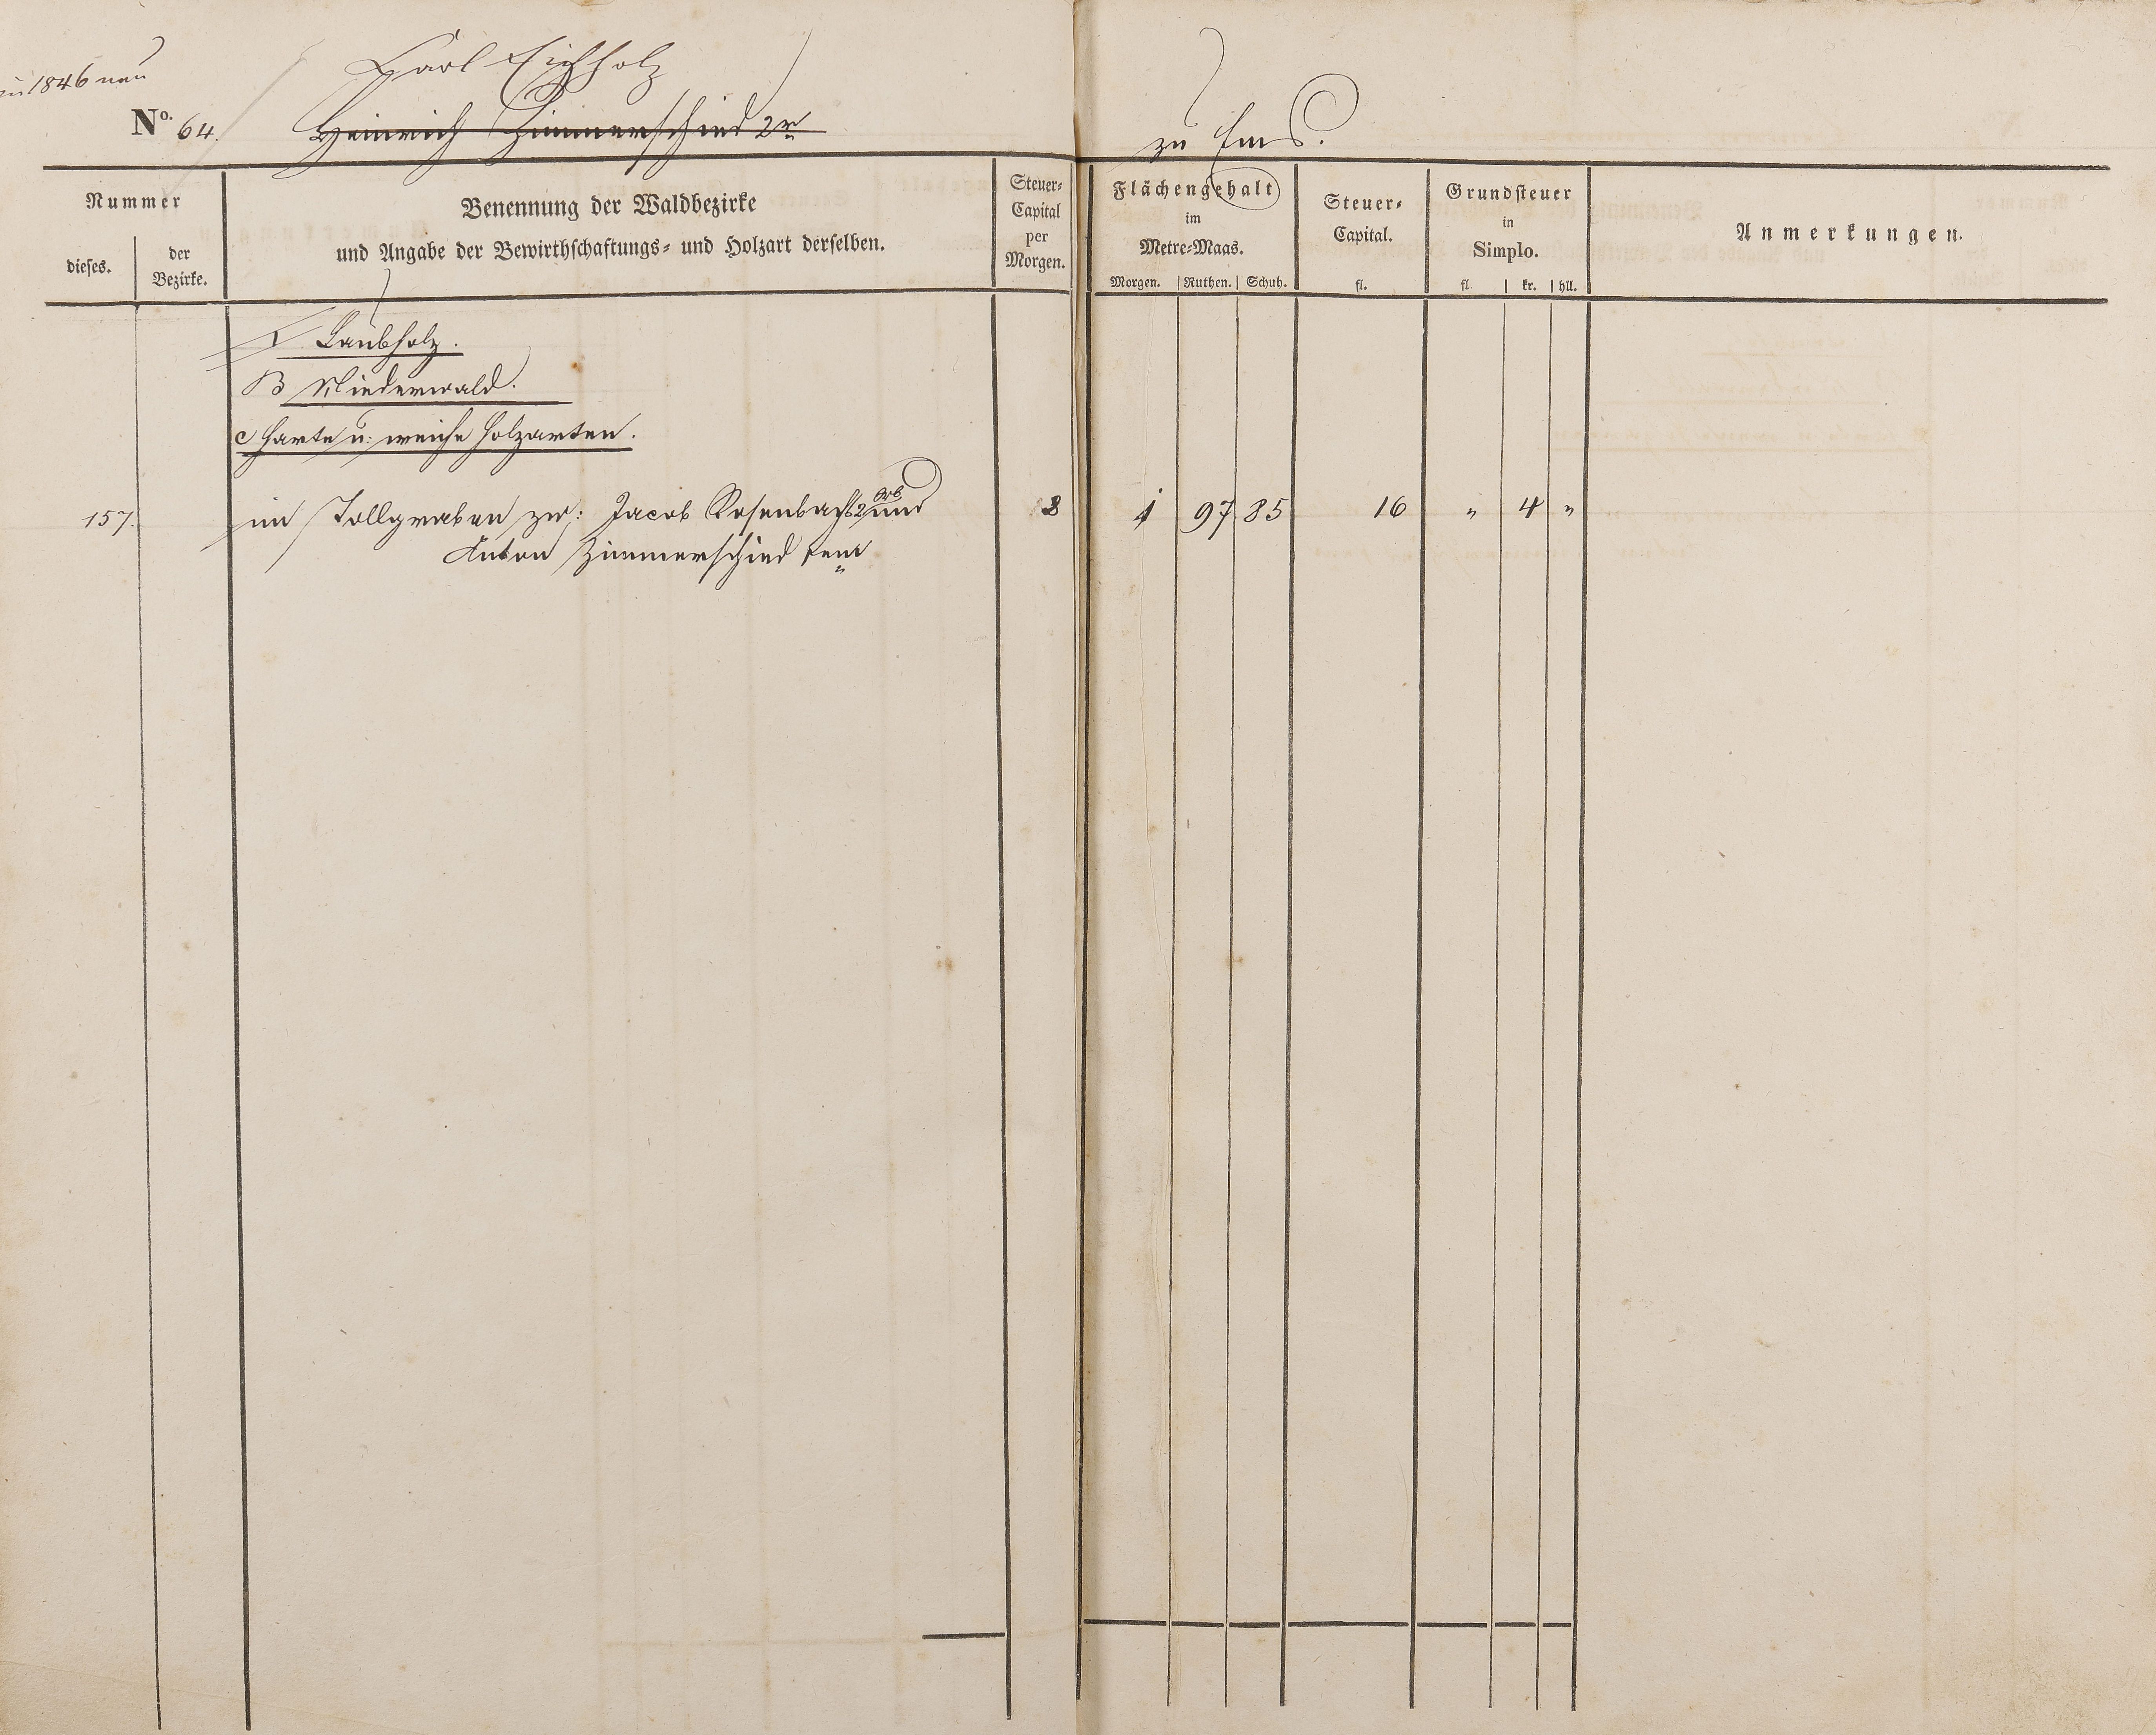 in 1846 neu
Karl Eichholz
No. 64. Heinrich Zimmerschied 2r zu Ems.
Nummer
dieses.
der Bezirke.
Benennung der Waldbezirke
und Angabe der Bewirthschaftungs- und Holzart derselben.
Steuer-
Capital
per
Morgen.
Flächengehalt
im
Metre-Maas.
Morgen. Ruthen. Schuh.
Steuer-
Capital.
fl.
Grundsteuer
in
Simplo.
fl. kr. hll.
Anmerkungen.
Laubholz.
B Niederwald.
c harte u: weiche Holzarten.
157. im Tollgraben zw: Jacob Rosenbach 2 Erb und 8 1 97 85 16 " 4 "
Anton Zimmerschied senr